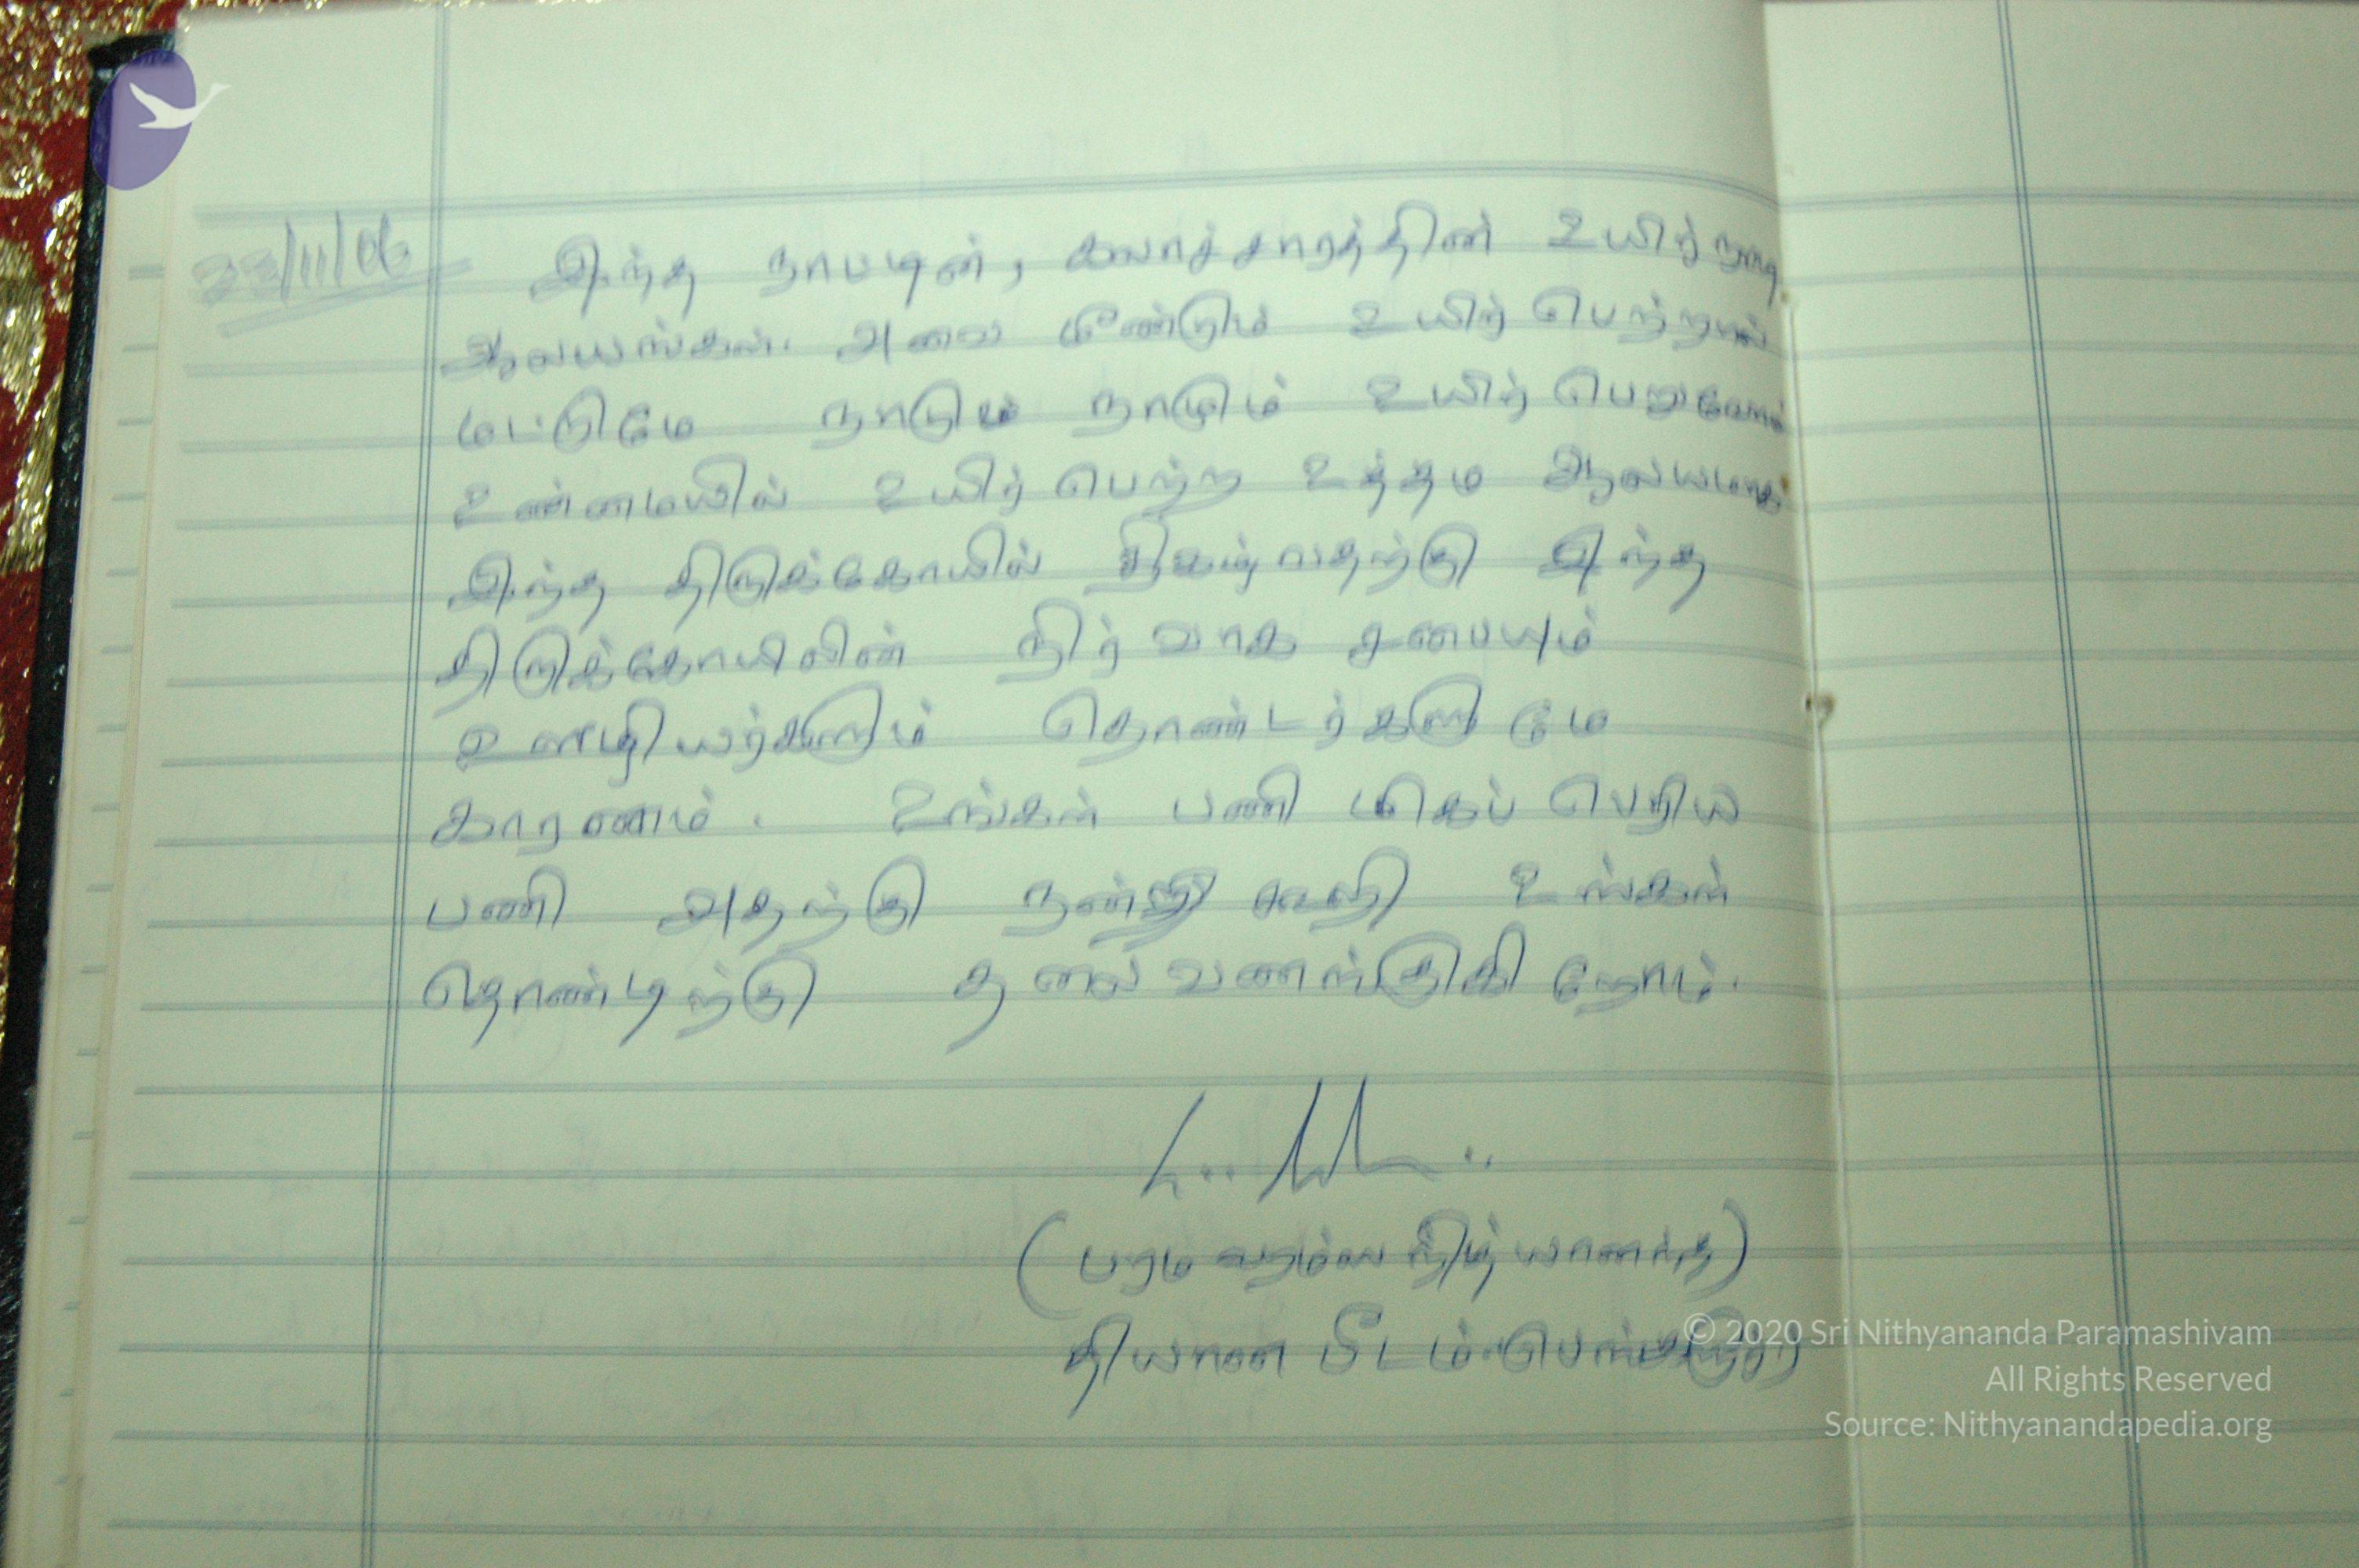 22/11/06 இந்த நாட்டின், கலாச்சாரத்தின் உயிர்நாடி
ஆலயங்கள். அவை மீண்டும் உயிர் பெற்றால்
மட்டுமே நாடும் நாமும் உயிர் பெறுவோம்
உண்மையில் உயிர் பெற்ற உத்தம ஆலயமாக
இந்த திருக்கோயில் திகழ்வதற்கு இந்த
திருக்கோயிலின் நிர்வாக சபையும்
ஊழியர்களும் தொண்டர்களுமே
காரணம். உங்கள் பணி மிகப் பெரிய
பணி அதற்கு நன்றி கூறி உங்கள்
தொண்டிற்கு தலை வணங்குகிறோம்.
(பரமஹம்ஸ நித்யானந்த)
தியான பீடம். பெங்களூர்
© 2020 Sri Nithyananda Paramashivam
All Rights Reserved
Source: Nithyanandapedia.org